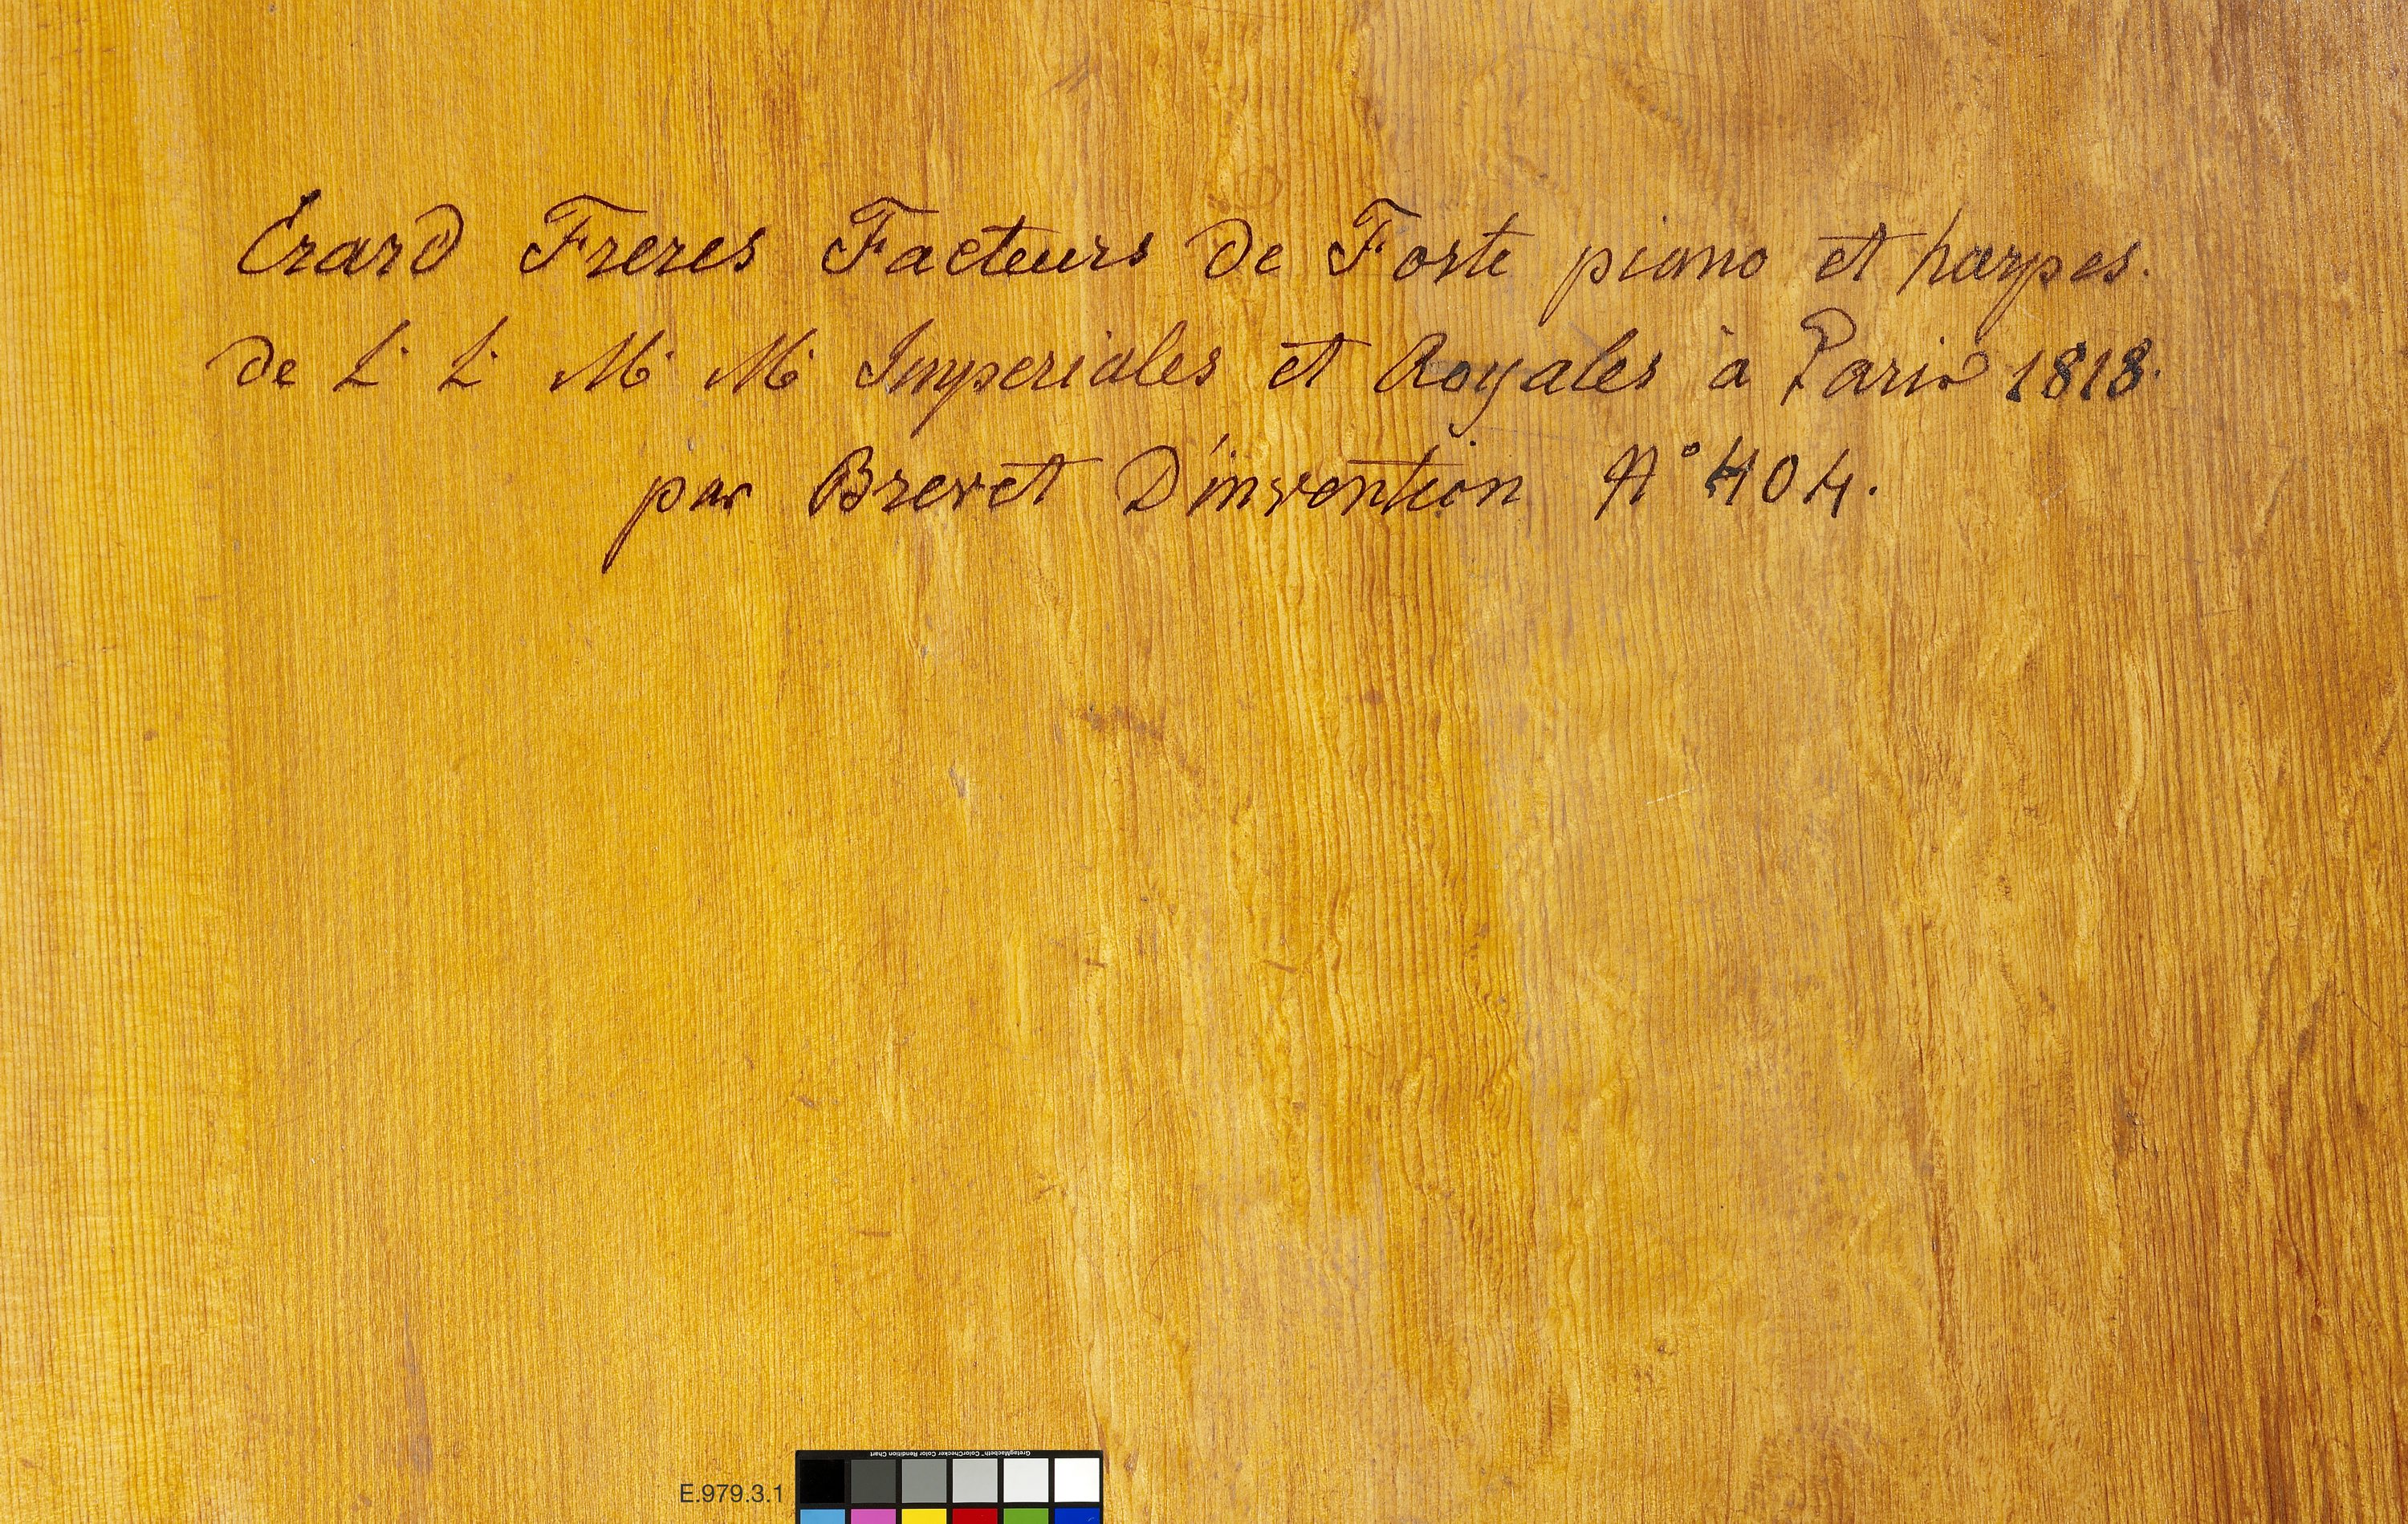 Érard Freres Facteurs de Forte piano et harpes.
de L. L. M. M. Imperiales et Royales à Paris 1813.
par Brevet D'invention N° 404.
GretagMacbeth™ ColorChecker Color Rendition Chart
E.979.3.1